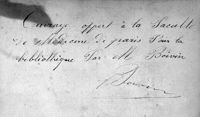 Ouvrage offert à la Faculté
de Médecine de paris Par la
bibliothèque Par M Boivin
Boivin